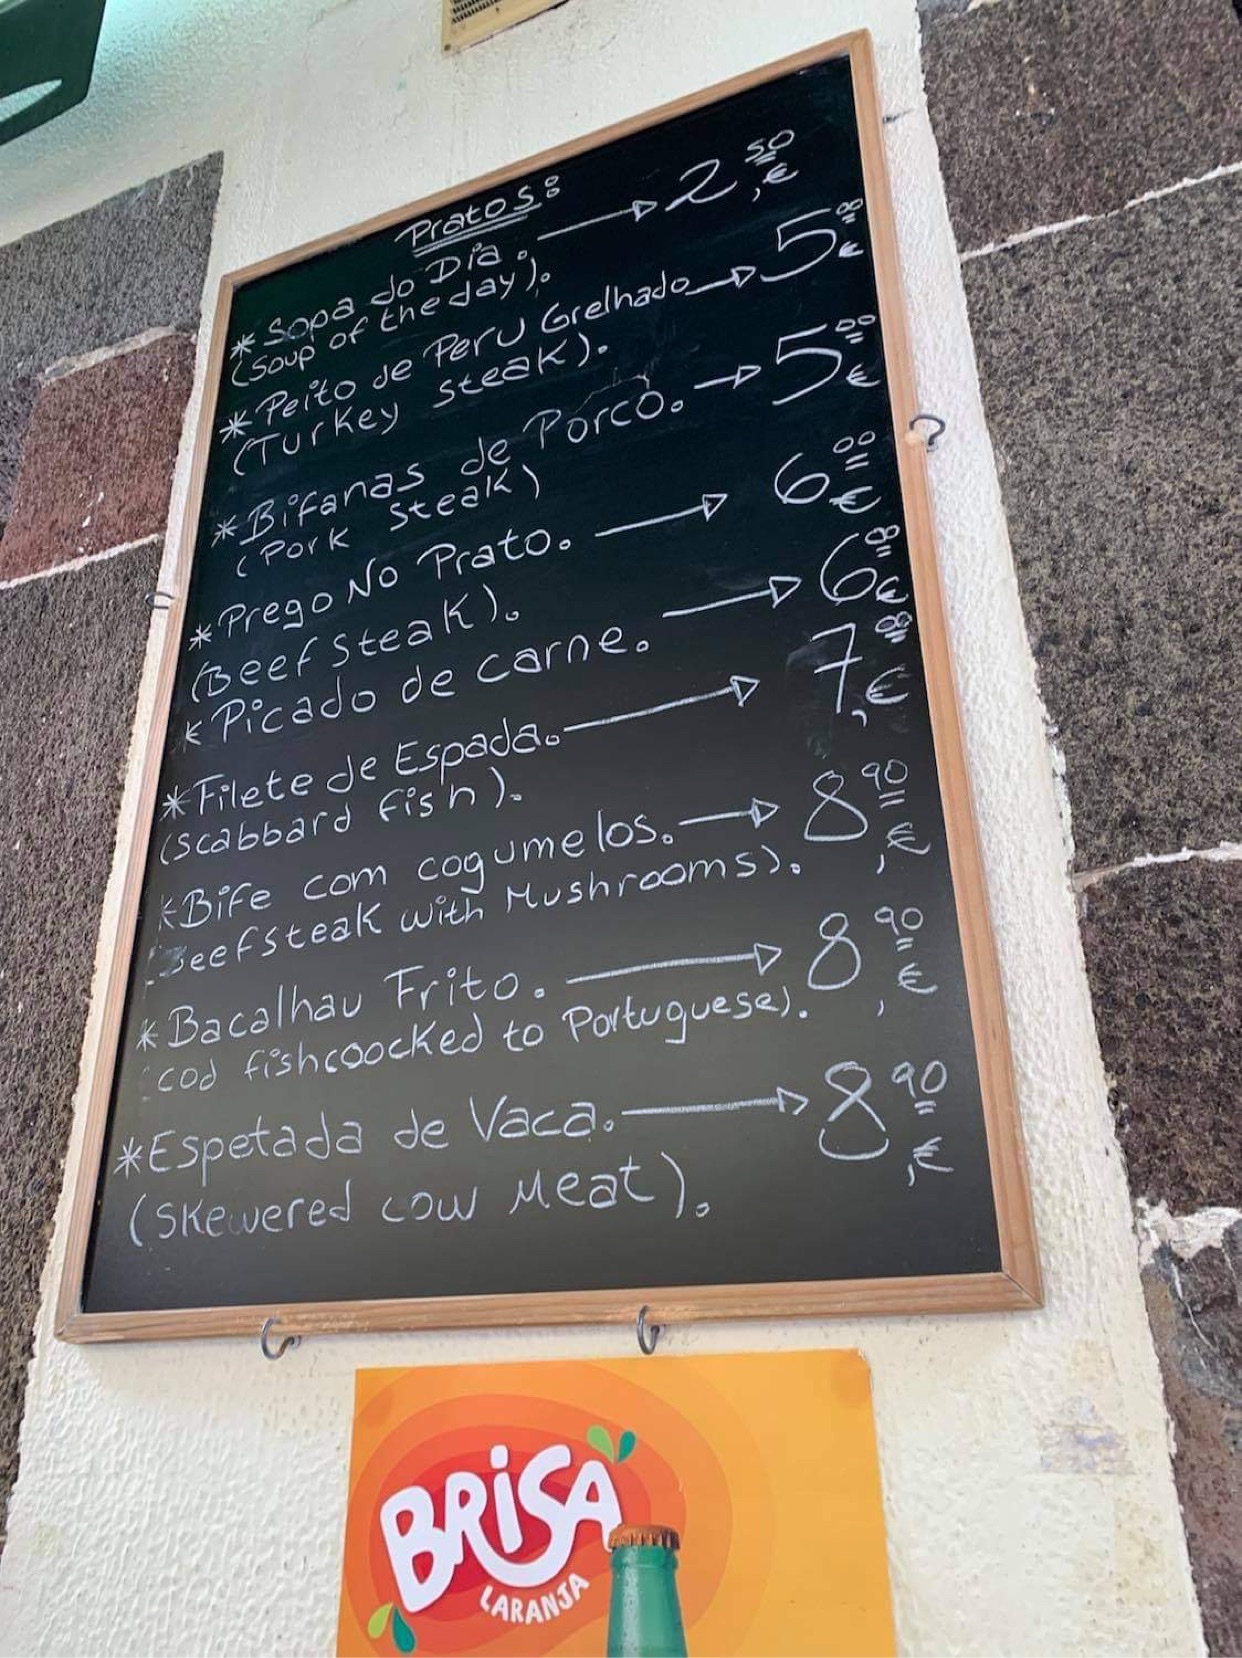 Pratos:
* Sopa do Dia. → 2,50 €
(Soup of the day).
* Peito de Peru Grelhado → 5 00 €
(Turkey steak).
* Bifanas de Porco. → 5 00 €
(Pork steak)
* Prego No Prato. → 6 00 €
(Beef Steak).
* Picado de carne. → 6 00 €
* Filete de Espada. → 7,00 €
(scabbard fish).
* Bife com cogumelos. → 8,90 €
Beefsteak with Mushrooms).
* Bacalhau Frito. → 8,90 €
cod fishcoocked to Portuguese).
* Espetada de Vaca. → 8,90 €
(Skewered cow Meat).
BRISA
LARANJA